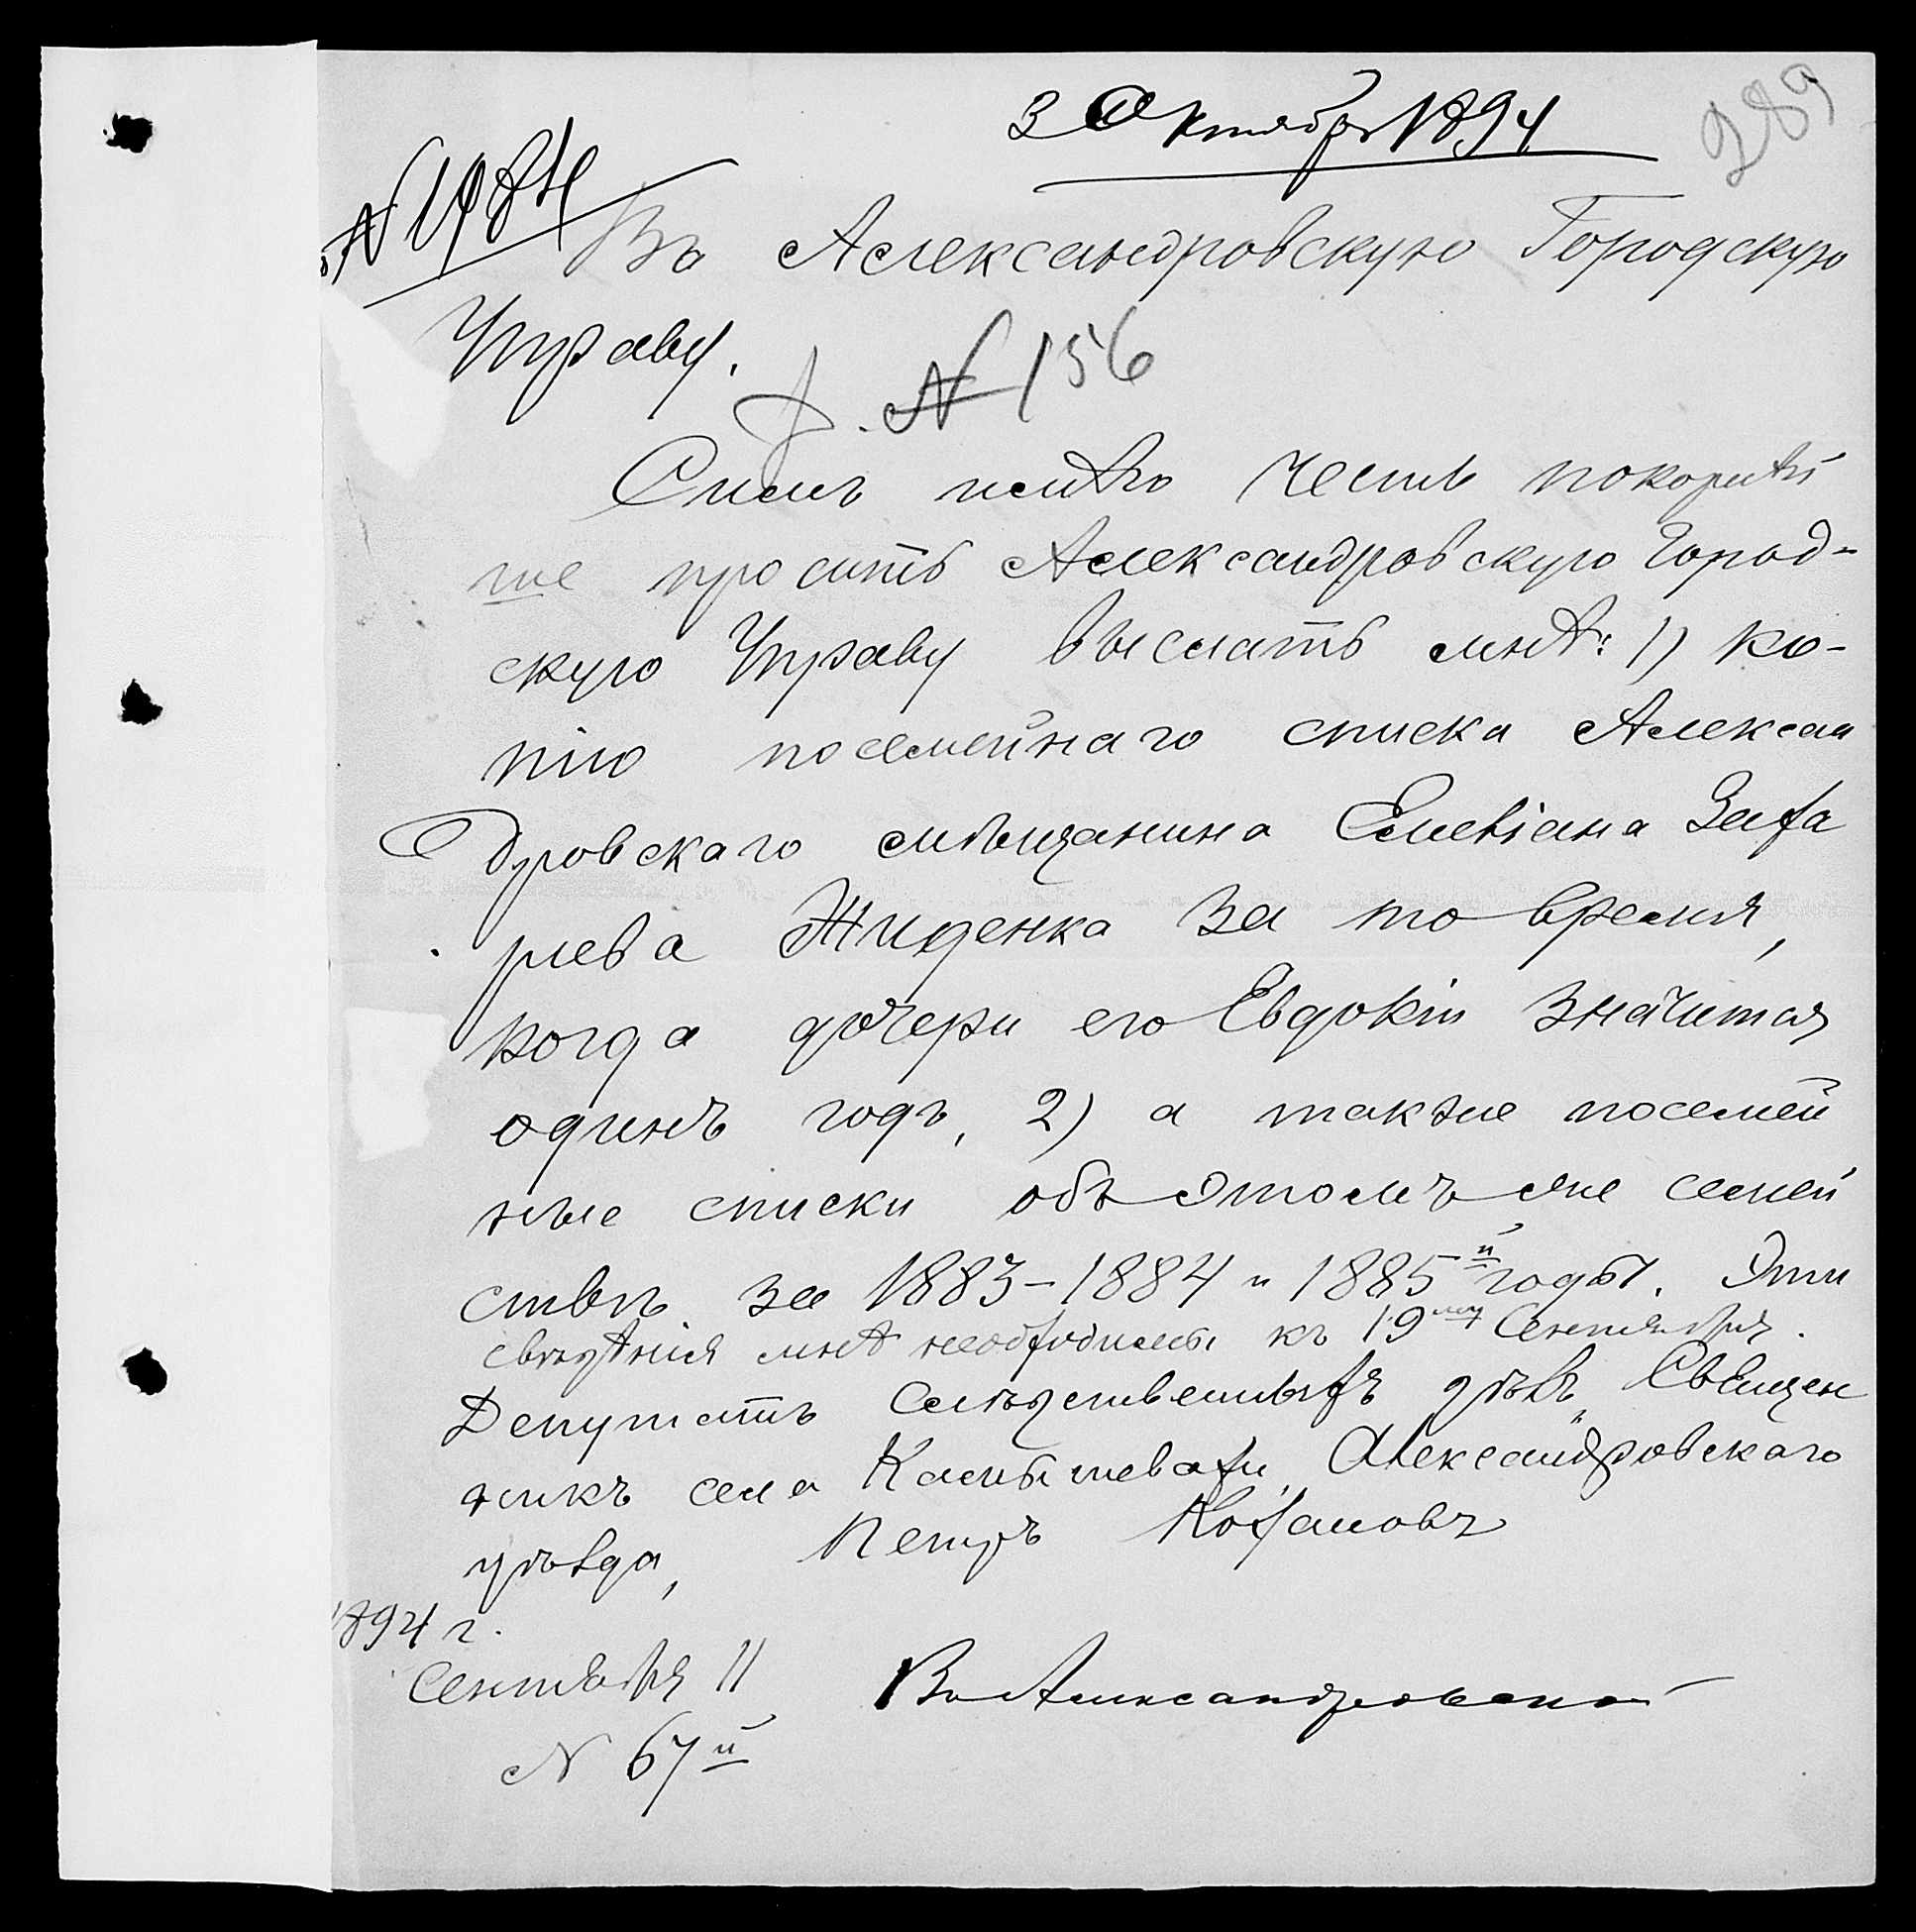 3 Октября 1894
289
№ 1984
Въ Александровскую Городскую
Управу.
№ 156
Симъ имѣю честь покорнѣй
ше просить Александровскую Город-
скую Управу выслать мнѣ: 1) ко-
пію посемейнаго списка Алексан
дровскаго мѣщанина Емеліана Заха
риева Жиденка за то время,
когда дочери его Евдокіи значится
одинъ годъ, 2) а также посемей
ные списки объ этомъ же семей
ствѣ за 1883-1884 и 1885й годы. Эти
свѣдѣнія мнѣ необходимы къ 19му Сентября.
Депутатъ слѣдственныхъ дѣлъ, Священ
никъ села Камышевахи, Александровскаго
уѣзда, Петръ Кохановъ
1894 г.
Сентября 11
№ 67й